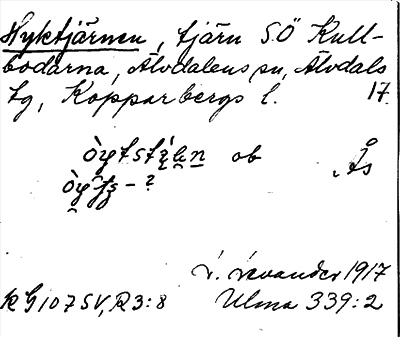 Nyktjärnen, tjärn SÖ Kull-
bodarna, Älvdalens sn, Älvdals
tg, Kopparbergs l. 17.
ob
Ås
Levander 1917
KG107SV, R3:8 Ulma 339:2